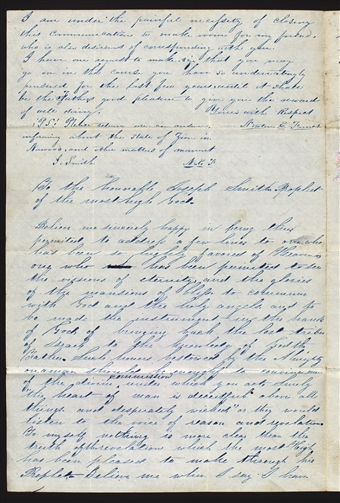 I am under the painful necessity of closing
this communication to make room for my friend
who is also desirous of corresponding with you.
I have one request to make sir that you may
go on in the cause you have so undeviatingly
pursued for the last few years until it shall
be the Fathers good pleasure to give you the reward
of well doing. Yours with Respect
P.S. Please return me an answer
informing about the state of Zion in
Nauvoo, and the matters of moment
J. Smith M.C.T.
To the Honorable Joseph Smith Prophet
of the most high God.
Believe me sincerely happy in being thus
permitted to address a few lines to one who
has been so highly favored of Heaven
one who has been permitted to see
the mysteries of eternity and the glories
of the mansions of light to commune
with God and the holy angels and to
be made the instrument in the hands
of God of bringing back the lost tribes
of Israel to the knowledge of
such power bestowed by the
of the divine under which you act. Surely
"the heart of man is deceitful above all
things and desperately wicked" or they would
listen to the voice of reason and revelation
To myself nothing is more clear than the
truth of the revelation which the most High
has been pleased to make through his
Prophet. Believe me when I say I have